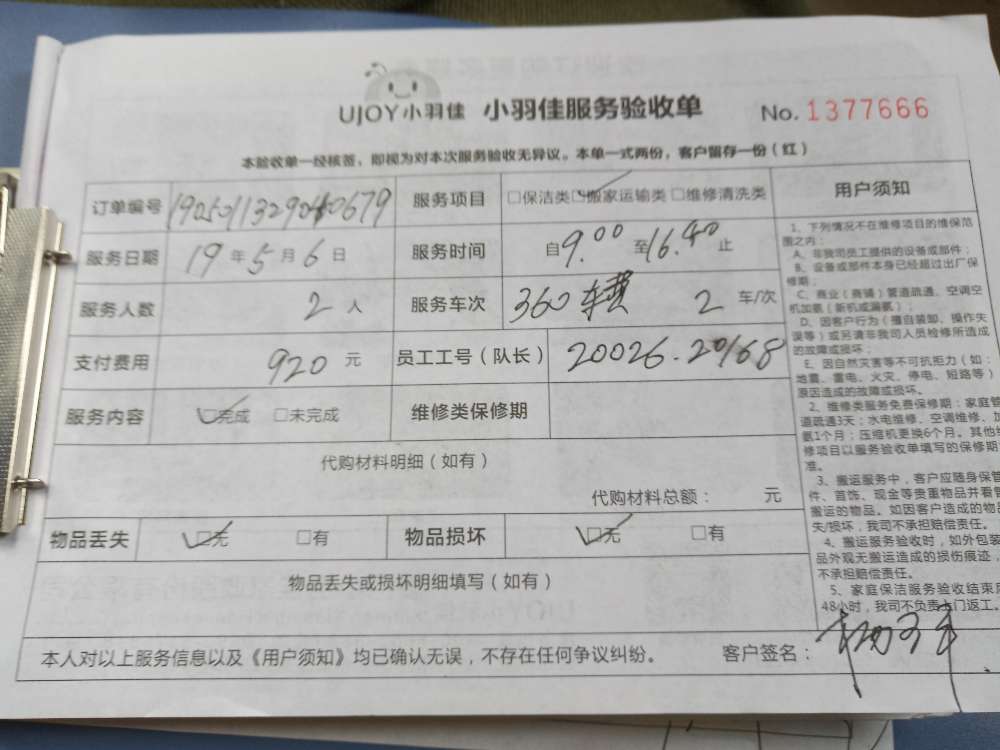 UJOY小羽佳 小羽佳服务验收单 No. 1377666
本验收单一经核签，即视为对本次服务验收无异议。本单一式两份，客户留存一份（红）
订单编号 服务项目 □保洁类 ☑搬家运输类 □维修清洗类
服务日期 19年5月6日 服务时间 自9.00至16.40止
服务人数 2人 服务车次 360车费 2车/次
支付费用 920元 员工工号（队长） 20026.20168
服务内容 ☑完成 □未完成 维修类保修期
代购材料明细（如有）
代购材料总额： 元
物品丢失 ☑无 □有 物品损坏 ☑无 □有
物品丢失或损坏明细填写（如有）
本人对以上服务信息以及《用户须知》均已确认无误，不存在任何争议纠纷。 客户签名：
用户须知
1、下列情况不在维修项目的维保范
围之内：
A、非我司员工提供的设备或部件；
B、设备或部件本身已经超过出厂保
修期；
C、商业（商铺）管道疏通、空调空
机加氨（新机或漏氨）；
D、因客户行为（擅自装卸、操作失
误等）或另请非我司人员检修所造成
的故障或损坏；
E、因自然灾害等不可抗拒力（如：
地震、雷电、火灾、停电、短路等）
原因造成的故障或损坏。
2、维修类服务免费保修期：家庭管
道疏通3天；水电维修、空调维修、加
氨1个月；压缩机更换6个月。其他维
修项目以服务验收单填写的保修期
准。
3、搬运服务中，客户应随身保管
件、首饰、现金等贵重物品并看管
搬运的物品。如因客户造成的物品
失/损坏，我司不承担赔偿责任。
4、搬运服务验收时，如外包装
品外观无搬运造成的损伤痕迹，
不承担赔偿责任。
5、家庭保洁服务验收结束后
48小时，我司不负责上门返工。